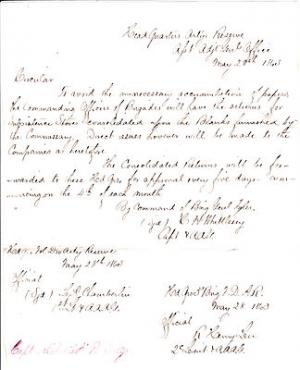 Head Quarters Arty Reserve
Asst Adjt Genls Office
May 28th 1863
Circular
To avoid the unnecessary accumulation of papers
the Commanding Officers of Brigades will have the returns for
Subsistence Stores consolidated upon the Blanks furnished by
the Commissary. Direct issues however will be made to the
Companies as heretofore.
The Consolidated Returns will be for-
warded to these Hd Qrs for approval every five days com-
mencing on the 4th of each month
By Command of Brig Genl Tyler
(Sgd) C. H. Whittlesey
Capt & A.A.G.
May 28th 1863
Official
(Sgd)
1st Lt & A.A.A.G.
May 28 1863
Official
2d Lieut & A.A.A.G.